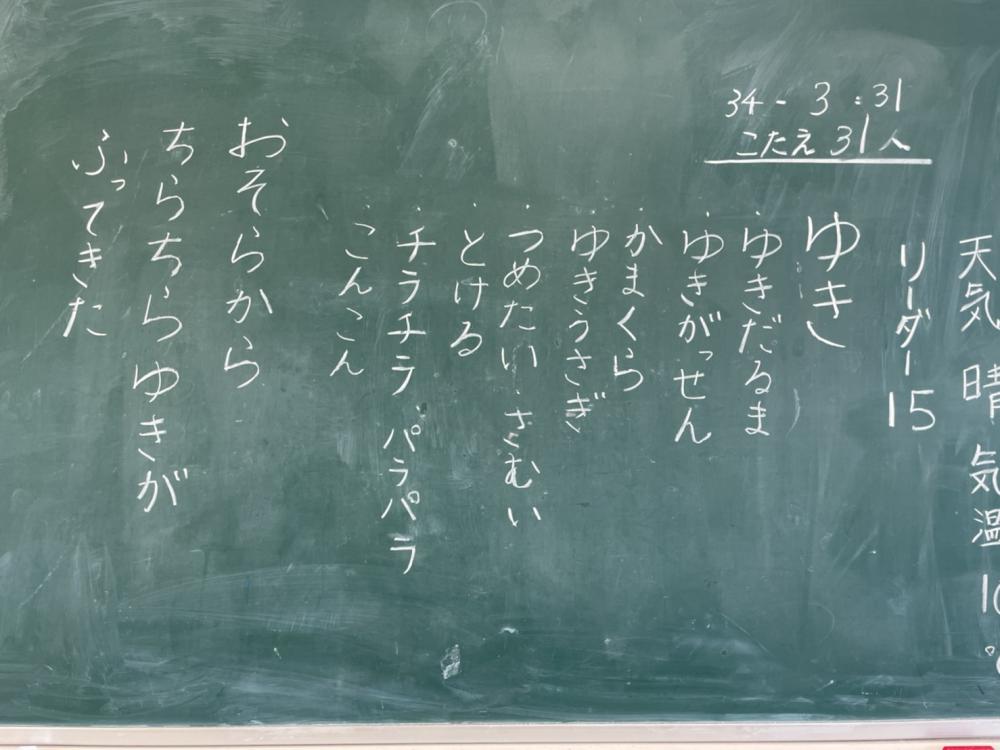 天気 晴 気温 10
リーダー 15
34 - 3 : 31
こたえ 31人
ゆき
・ゆきだるま
・ゆきがっせん
・かまくら
・ゆきうさぎ
・つめたい・さむい
・とける
・チラチラ パラパラ
・こんこん
おそらから
ちらちらゆきが
ふってきた